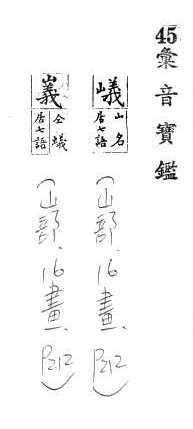 45彙音寶鑑
嶬
山名
居七語
(山部、16畫、P212)
仝嶬
居七語
(山部、16畫、P212)